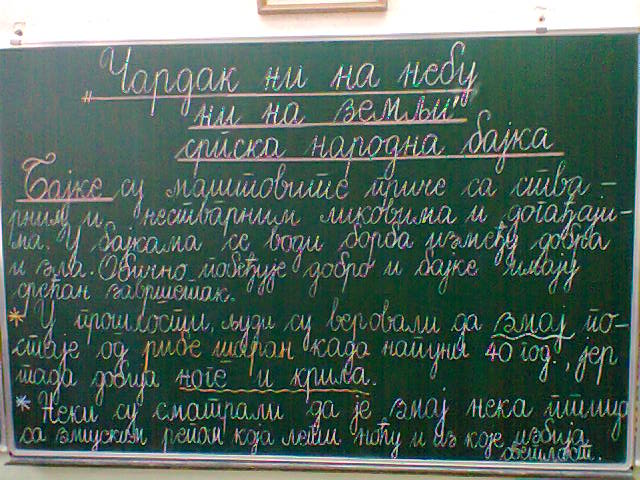 „Чардак ни на небу
ни на земљи"
српска народна бајка
Бајке су маштовите приче са ствар-
ним и нестварним ликовима и догађаји-
ма. У бајкама се води борба између добра
и зла. Обично побеђује добро и бајке имају
срећан завршетак.
* У прошлости, људи су веровали да змај по-
стаје од рибе шаран када напуни 40 год., јер
тада добија ноге и крила.
* Неки су сматрали да је змај нека птица
са змијским репом која лети ноћу и из које избија
светлост.